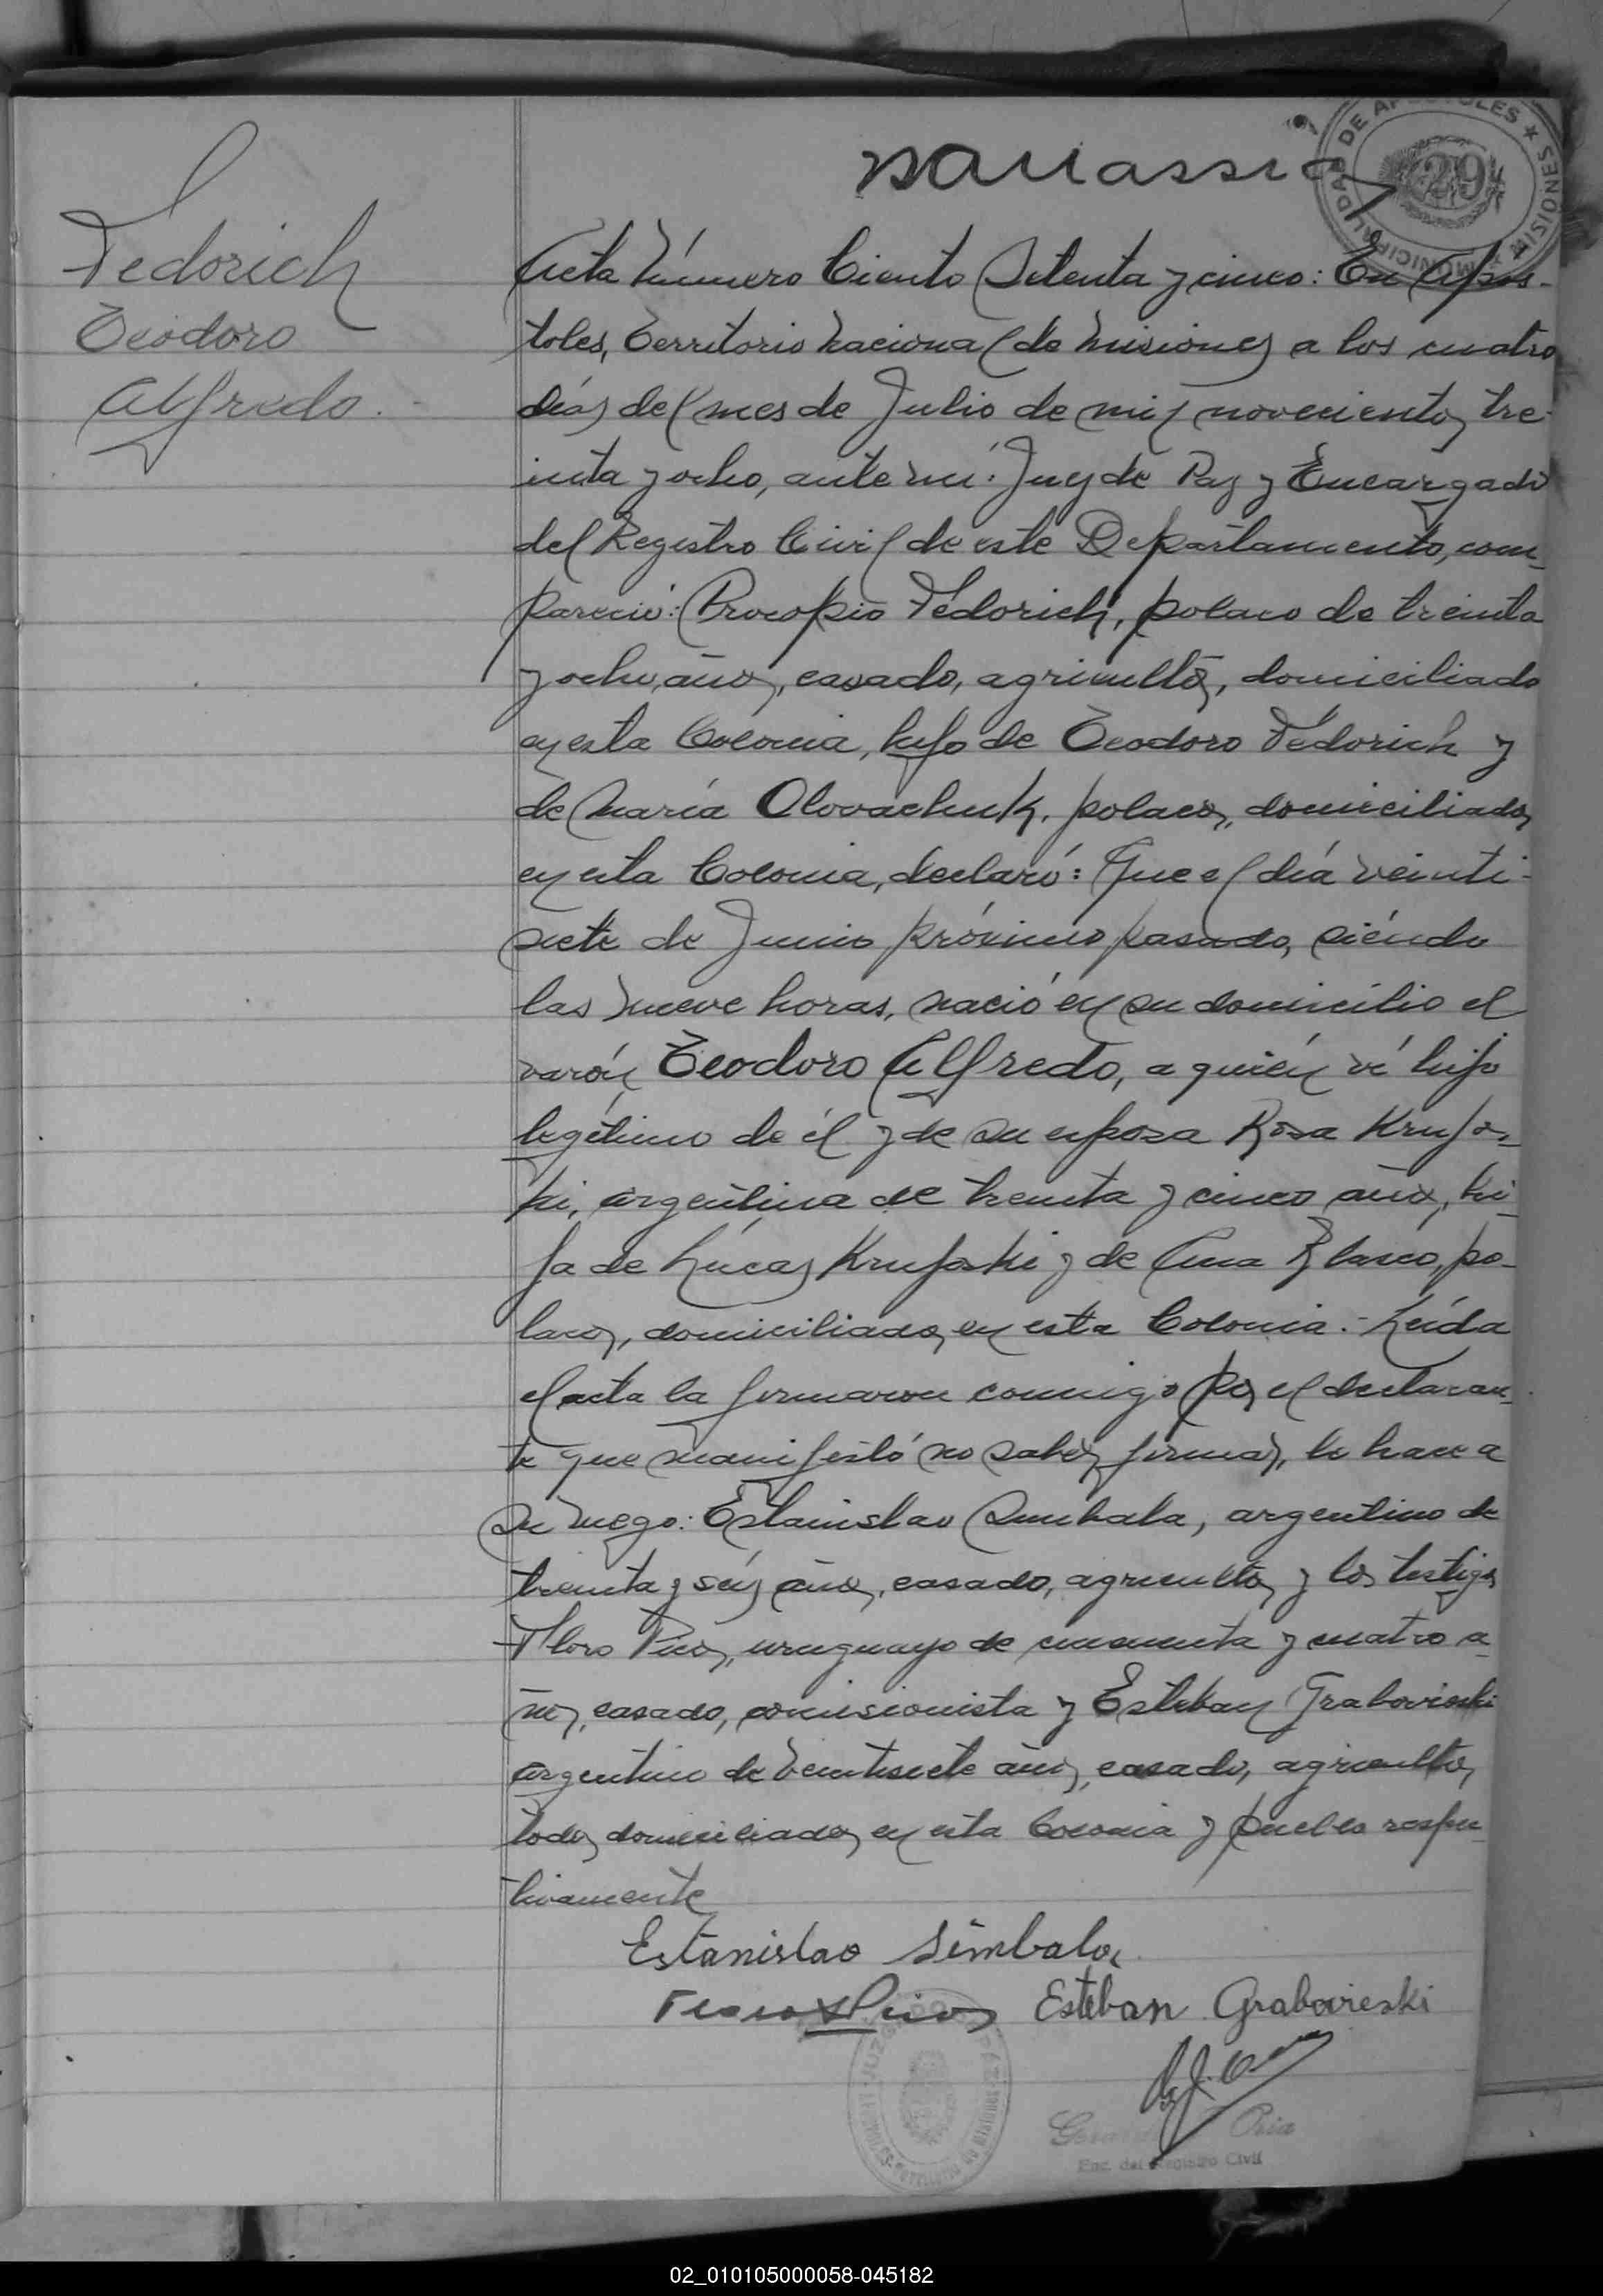 MUNICIPALIDAD DE APOSTOLES ★ MISIONES ★
29
Fedorich
Teodoro
Alfredo.
Acta Número Ciento Setenta y cinco: En Apos-
toles, Territorio Nacional de Misiones a los cuatro
días del mes de Julio de mil novecientos tre-
inta y ocho, ante mí: Juez de Paz y Encargado
del Registro Civil de este Departamento, com-
pareció: Procopio Fedorich, polaco de treinta
y ocho años, casado, agricultor, domiciliado
en esta Colonia, hijo de Teodoro Fedorich y
de María Olovachuk, polacos, domiciliados
en esta Colonia, declaró: Que el día veinti-
siete de Junio próximo pasado, siéndo
las nueve horas, nació en su domicilio el
varón Teodoro Alfredo, a quién ví hijo
legítimo de él y de su esposa Rosa Krujos-
ki, argentina de treinta y cinco años, hi-
ja de Lúcas Krujoski y de Ana, po-
lacos, domiciliados en esta Colonia.- Leída
el acta la firmaron conmigo por el declaran-
te que manifestó no saber firmar, lo hace a
su ruego: Estanislao, argentino de
treinta y seis años, casado, agricultor y los testigos
Floro, uruguayo de cincuenta y cuatro a-
ños, casado, comisionista y Esteban Grabovieski
argentino de veintisiete años, casado, agricultor,
todos domiciliados en esta Colonia y pueblo respec-
tivamente
Estanislao Simbala
Esteban Grabovieski
Enc. del Registro Civil
02_010105000058-045182